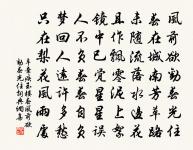 風前欲勸春光住
春在城南芳草路
未隨流落水邊花
且作飄零泥上絮
鏡中已覺星星誤
人不負春春自負
夢回人遠許多愁
只在梨花風雨處
辛棄疾玉樓春風前欲
勸春光住